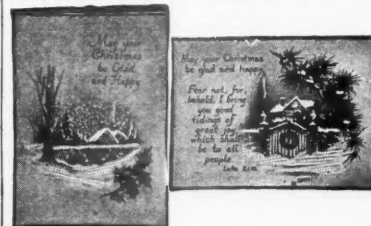 May your
Christmas
be Glad
and Happy
May your Christmas
be glad and happy
Fear not, for,
behold, I bring
you good
tidings of
great joy,
which shall
be to all
people.
Luke 2:10